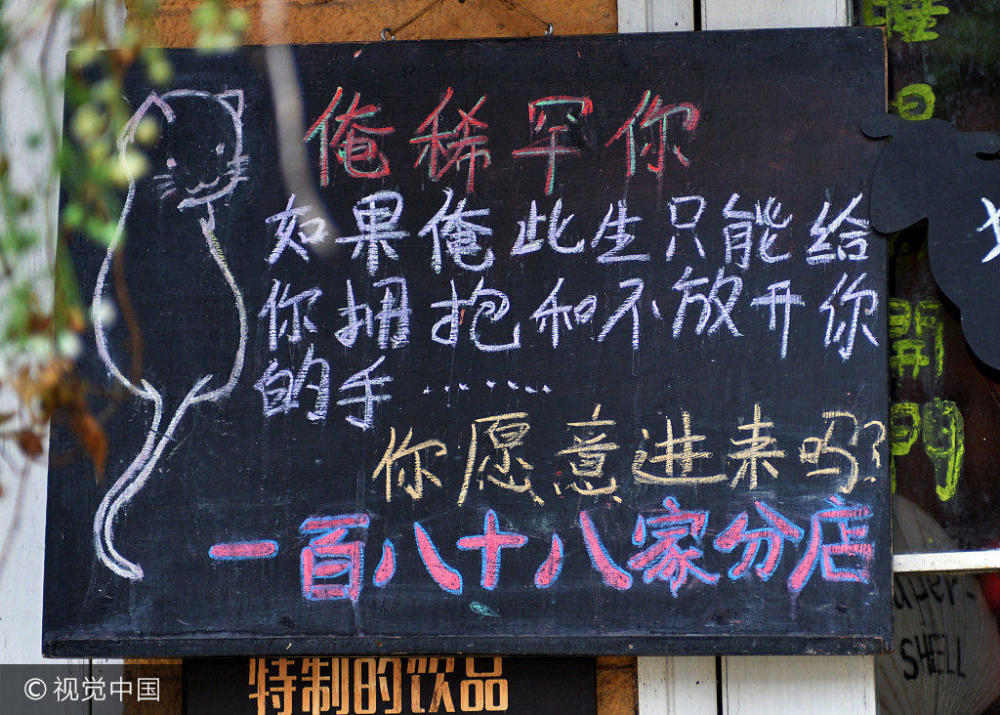 俺稀罕你
如果俺此生只能给
你拥抱和不放开你
的手……
你愿意进来吗?
一百八十八家分店
特制的饮品
開
門
SHELL
© 视觉中国